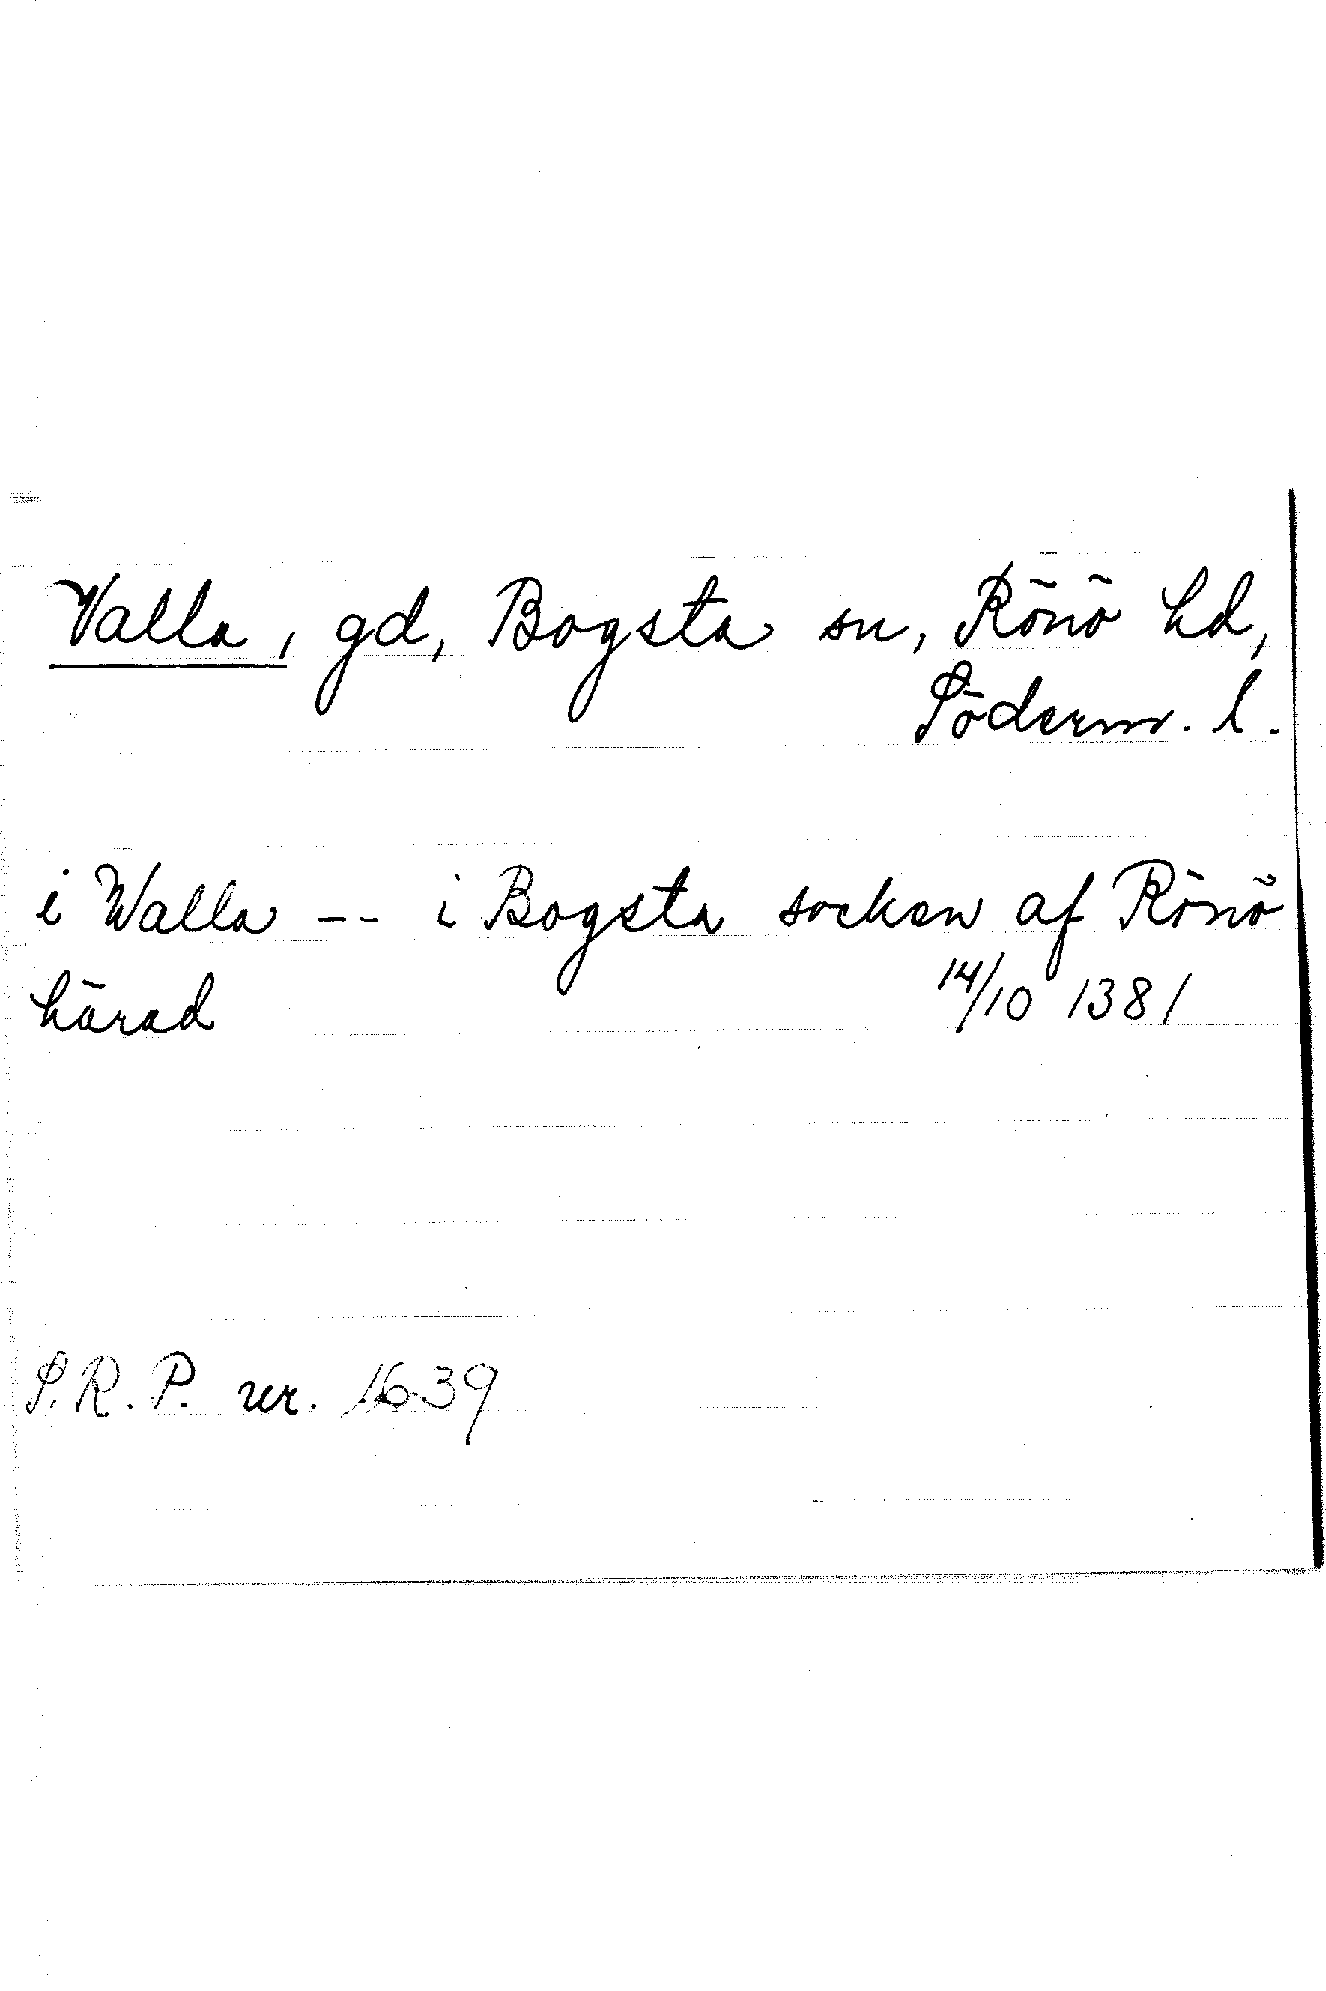 Valla, gd, Bogsta sn, Rönö hd,
Söderm. l.
i Walla -- i Bogsta socken af Rönö
härad 14/10 1381
S.R.P. nr. 1639